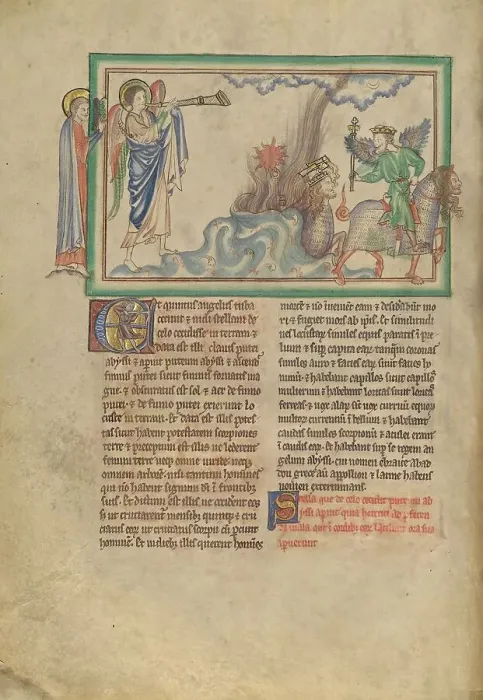 Et quintus angelus tuba
cecinit & uidi stellam de
celo cecidisse in terram &
data est illi clauis putei
abyssi & apuit puteum abyssi & ascendit
fumus putei sicut fumus fornacis ma
gne. & obscuratus est sol & aer de fumo
putei. & de fumo putei exierunt lo
custe in terram. Et data est illis potes
tas sicut habent potestatem scorpiones
terre & preceptum est illis ne lederent
fenum terre neq; omne uiride. neq;
omnem arborem. nisi tantum homines
qui nō habent signum dī ī frontibȝ
suis. Et dictum est illis ne occiderent eos
sȝ ut cruciarent mensibȝ quinqȝ & cru
ciatus eorȝ ut cruciatus scorpii cū pcutit
hominē. Et in diebȝ illis querent homines
mortē & nō inuenient eam & desidabūt mo
ri & fugiet mors ab ipīs. Et similitudi
nes locustarȝ similes equis paratis ī pre
lium & sup capita earȝ tanqͣm coronas
similes auro & facies earȝ sicut facies ho
minū. & habebant capillos sicut capillos
mulierum & habebant loricas sicut loricas
ferreas & uox alarȝ sicut uox curruū equorȝ
multorȝ currentiū ī bellum & habebant
caudas similes scorpionū & aculei erant
ī caudis earȝ. Et habebant sup se regem an
gelum abyssi. cui nomen ebraice abad
don grece aūt appolion & latine habens
nomen exterminans.
Stella que de celo cecidit